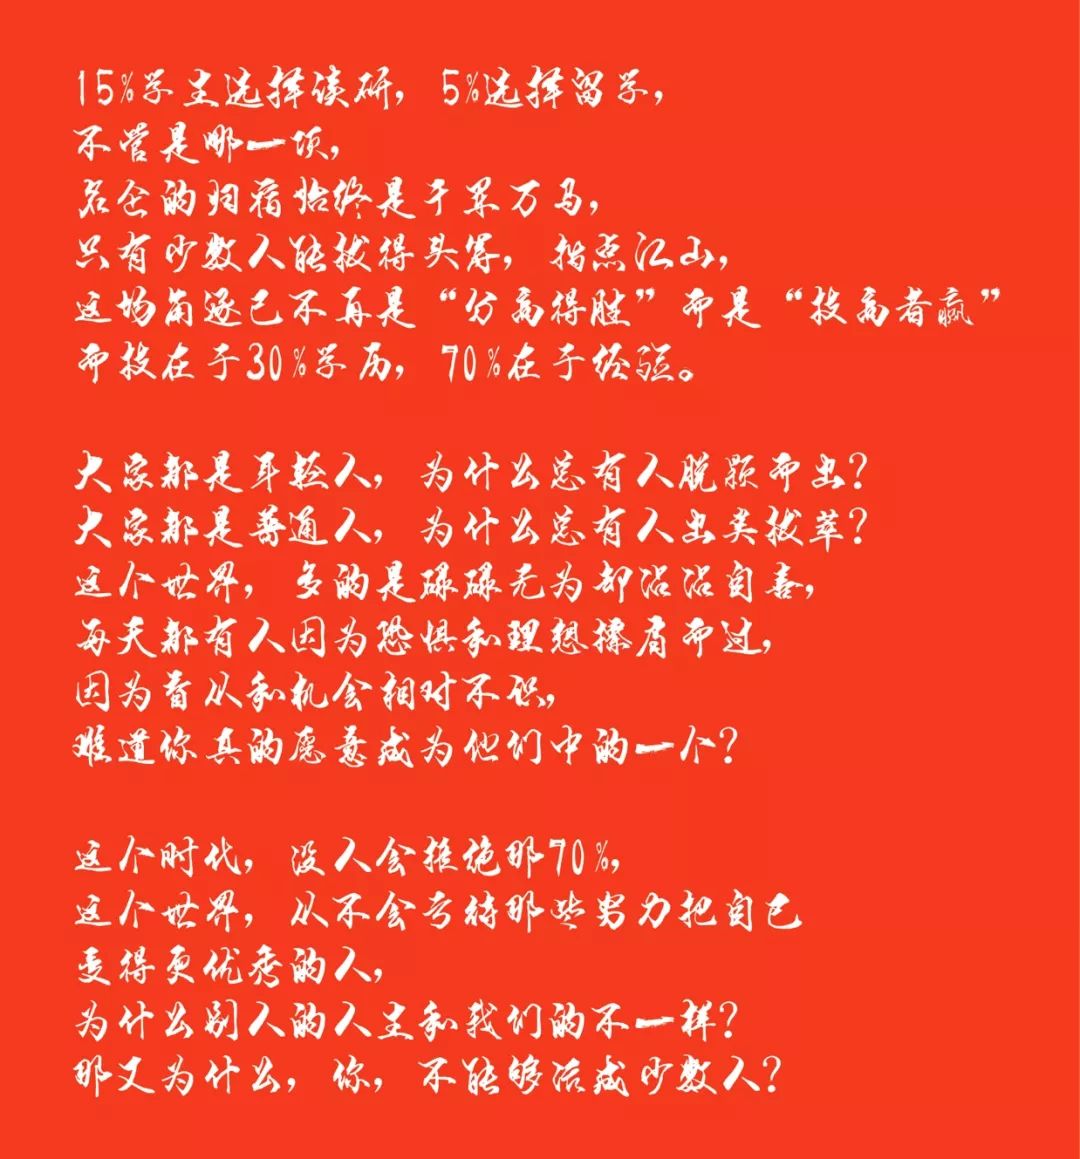 15%学生选择读研，5%选择留学，
不管是哪一项，
名企的归宿始终是千军万马，
只有少数人能拔得头筹，指点江山，
这场角逐已不再是“分高得胜”而是“技高者赢”
而技在于30%学历，70%在于经验。
大家都是年轻人，为什么总有人脱颖而出？
大家都是普通人，为什么总有人出类拔萃？
这个世界，多的是碌碌无为却沾沾自喜，
每天都有人因为恐惧和理想擦肩而过，
因为盲从和机会相对不识，
难道你真的愿意成为他们中的一个？
这个时代，没人会拒绝那70%，
这个世界，从不会亏待那些努力把自己
变得更优秀的人，
为什么别人的人生和我们的不一样？
那又为什么，你，不能够活成少数人？